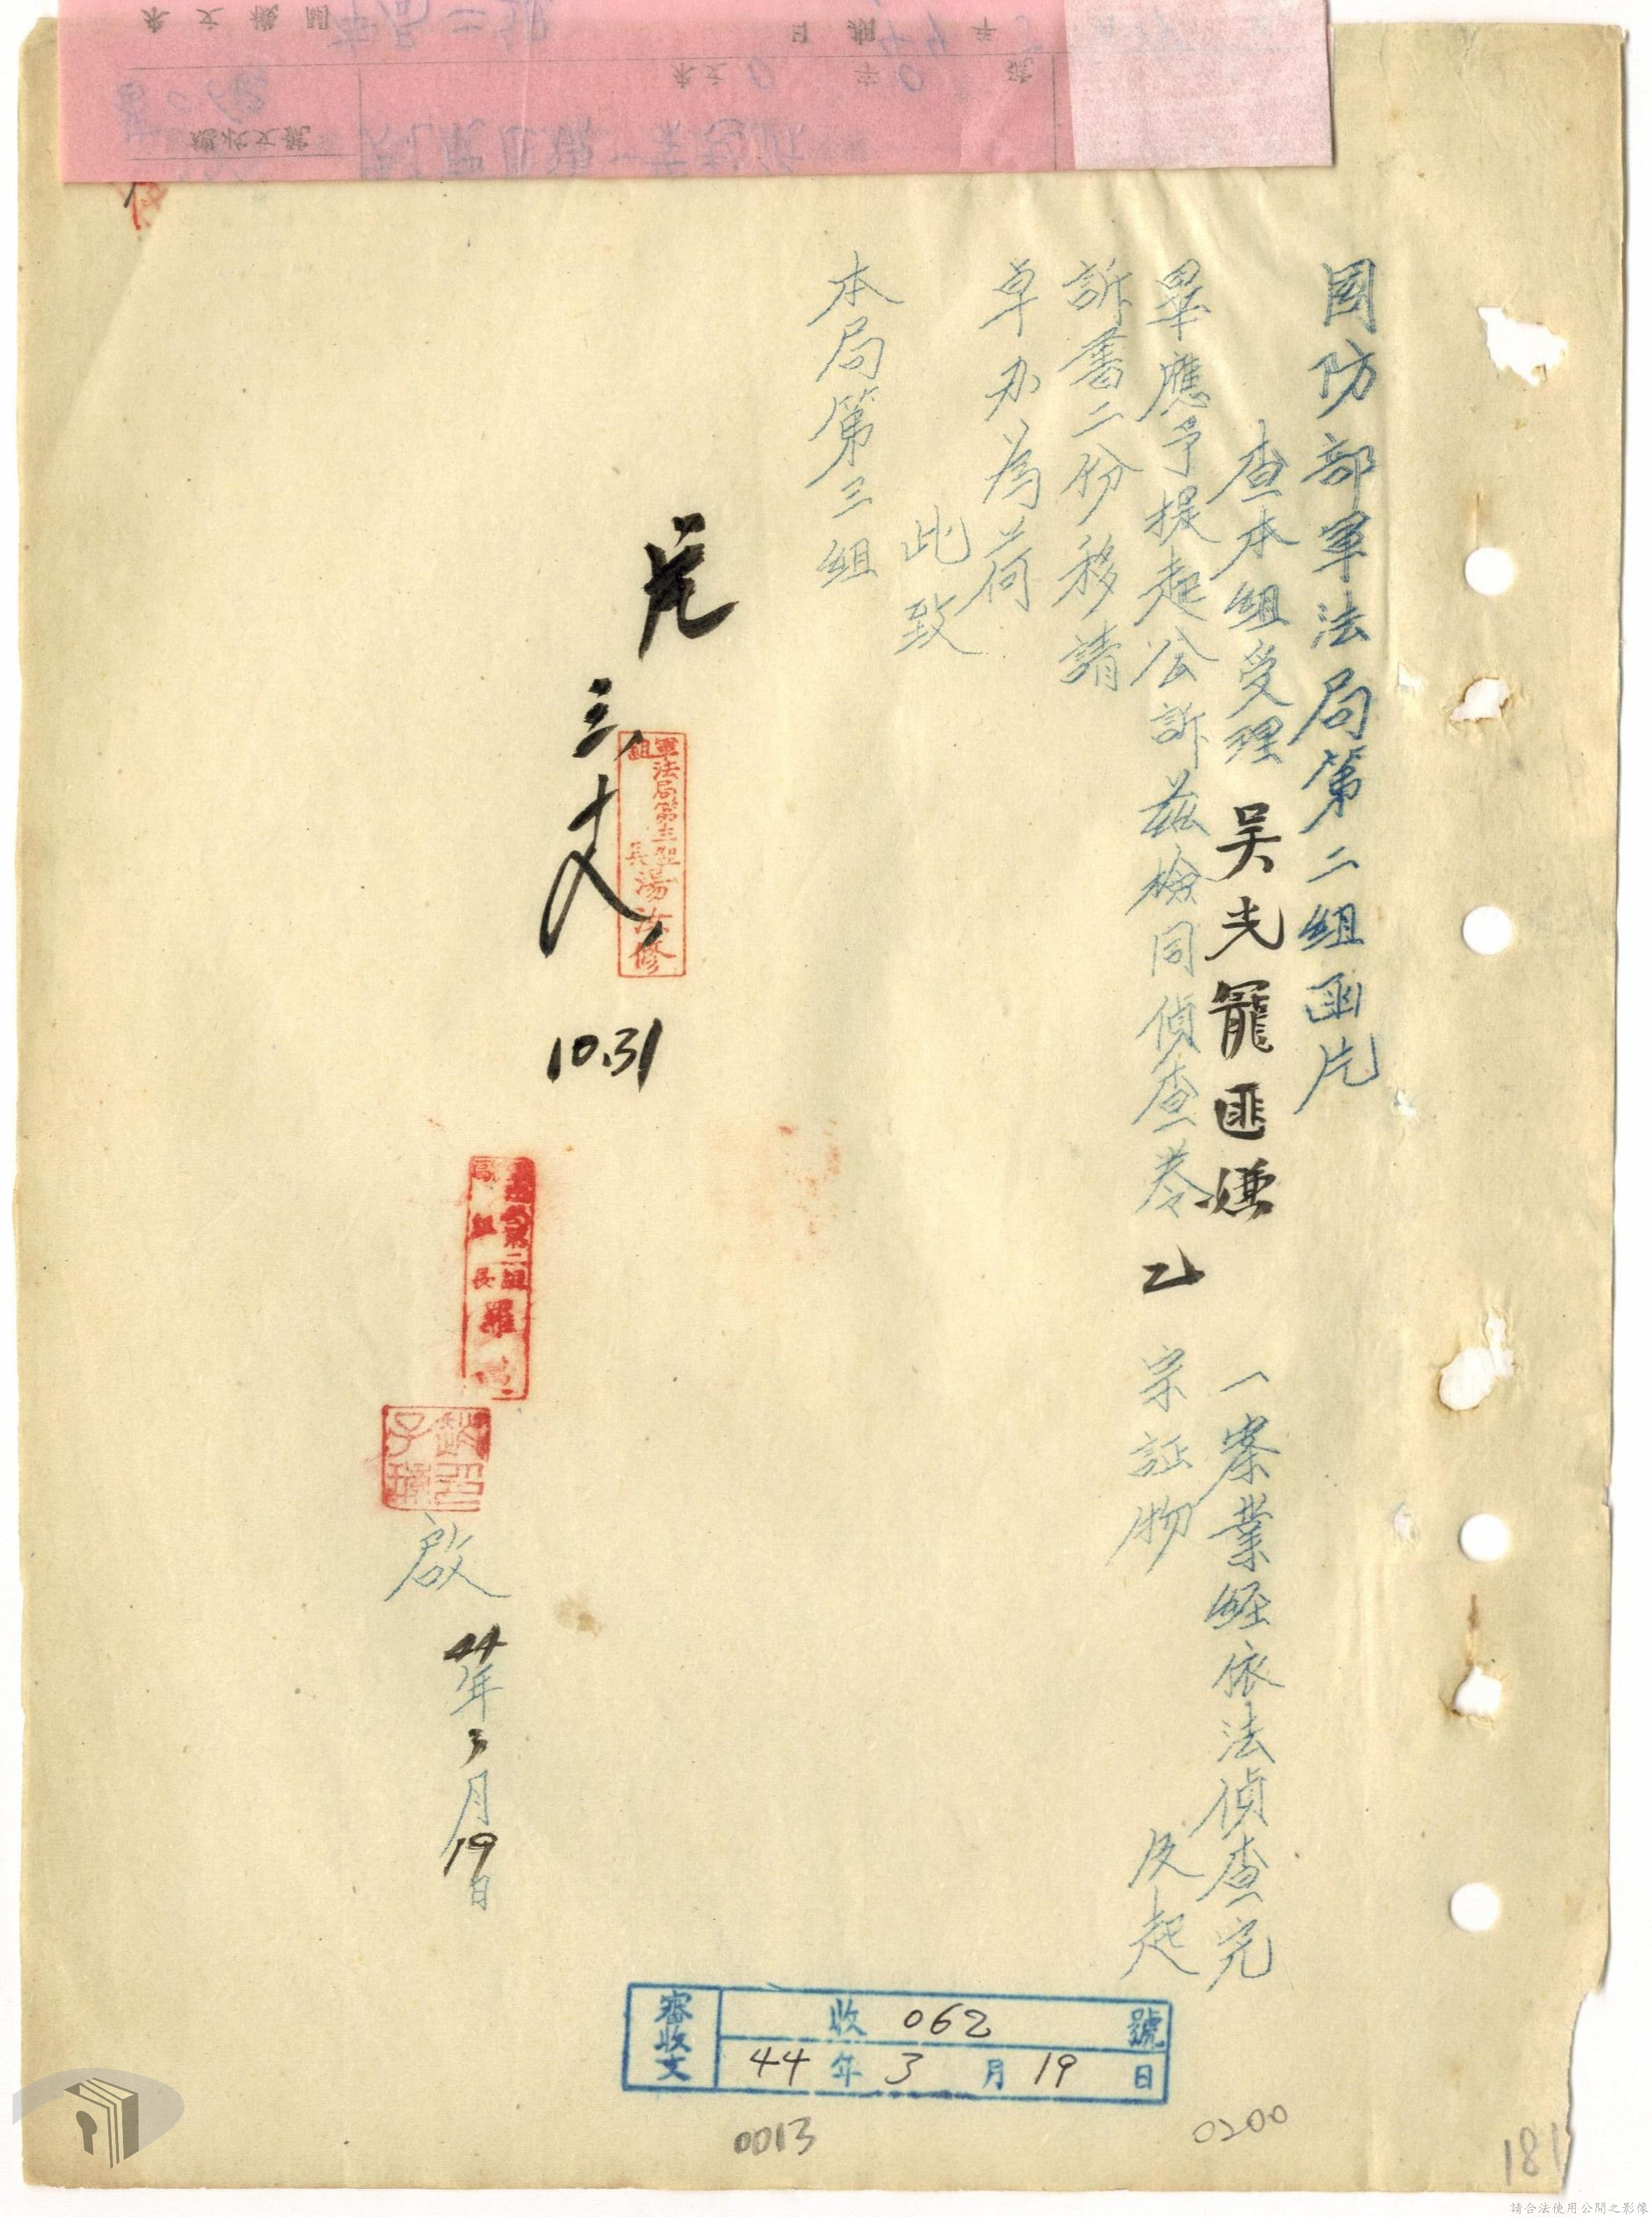 國防部軍法局第二組函片
查本組受理 吴光寵匪嫌 一案業經依法偵查完
畢應予提起公訴茲檢同偵查卷 乙 宗証物 及起
訴書二份移請
卓办為荷
此致
本局第三組
軍法局第三組
組長湯汝修
10.31
第二組
組長羅
啟
44年3月19日
審收文
收 062 號
44年3月19日
0013
0200
181
來文機關
日期
年
來文
字
號
總收文號
請合法使用公開之影像